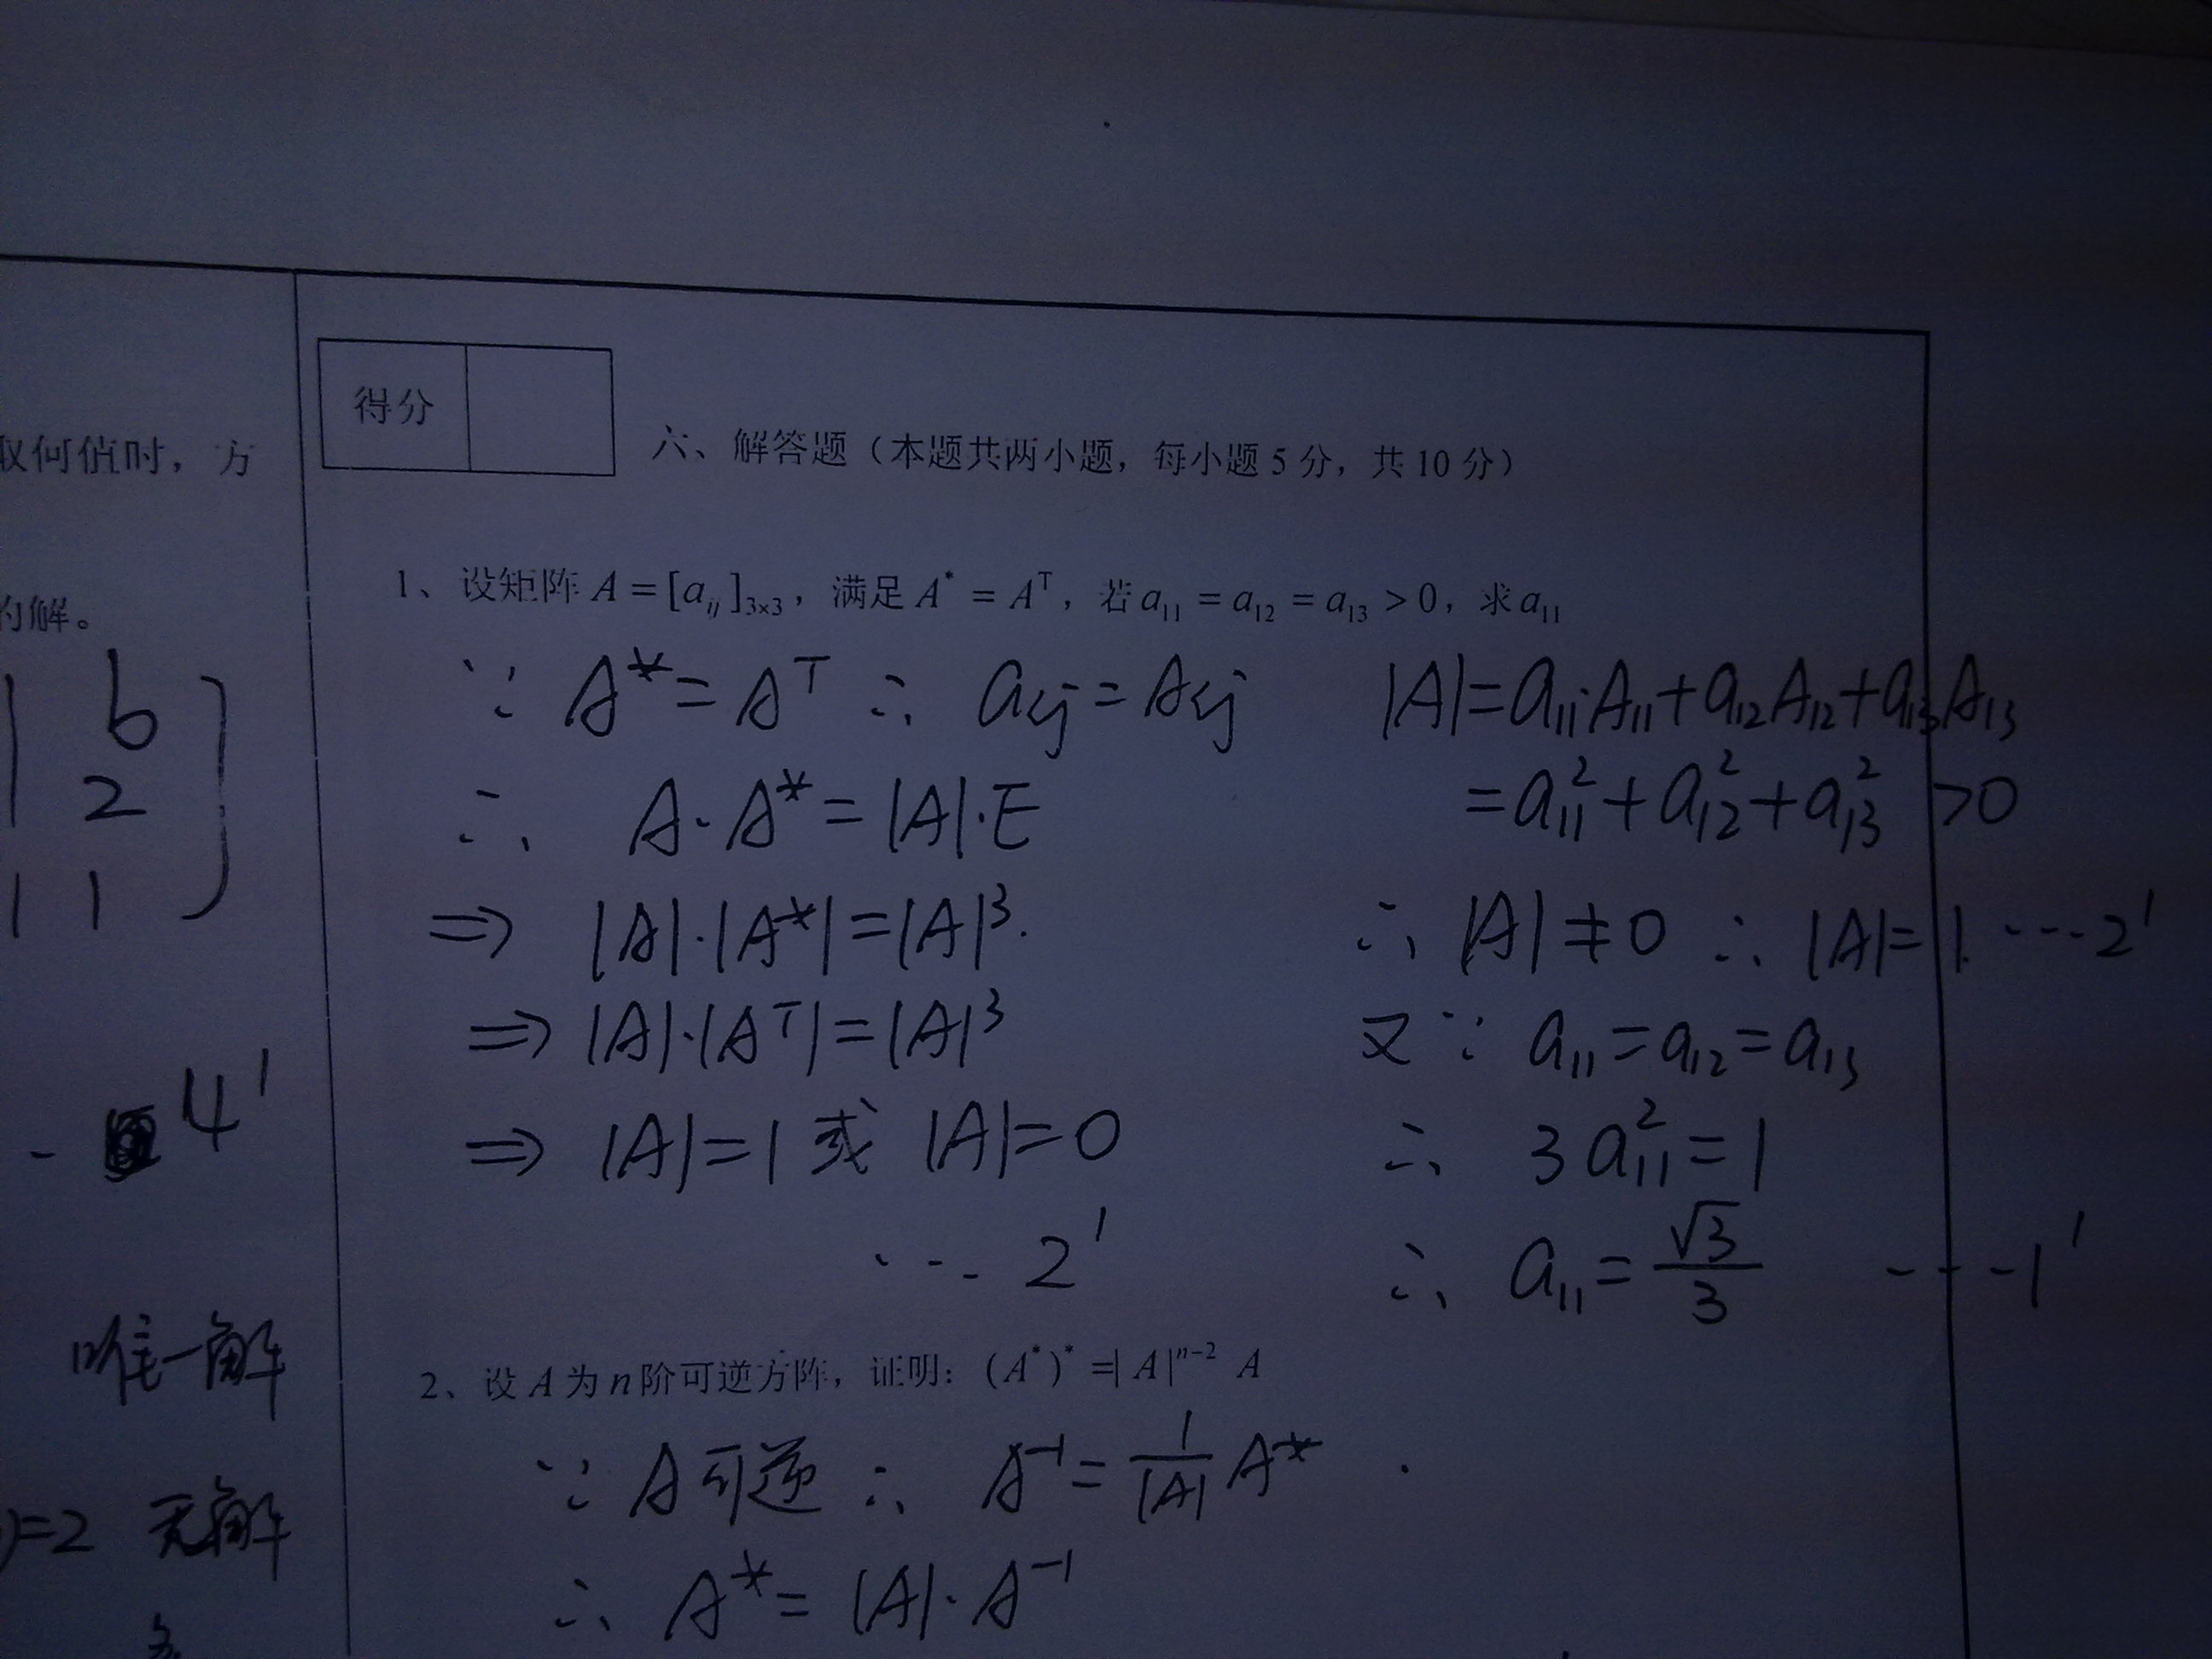 取何值时，方
的解。
b
2
1 1
4'
唯一解
)=2 无解
得分
六、解答题（本题共两小题，每小题 5 分，共 10 分）
1、设矩阵 A = [a_{ij}]_{3×3}，满足 A^* = A^T，若 a_{11} = a_{12} = a_{13} > 0，求 a_{11}
∵ A^* = A^T ∴ a_{ij} = A_{ij}
∴ A·A^* = |A|·E
⇒ |A|·|A^*| = |A|^3.
⇒ |A|·|A^T| = |A|^3
⇒ |A| = 1 或 |A| = 0
··· 2'
|A| = a_{11}·A_{11} + a_{12}A_{12} + a_{13}A_{13}
= a_{11}^2 + a_{12}^2 + a_{13}^2 > 0
∴ |A| ≠ 0 ∴ |A| = 1. ··· 2'
又∵ a_{11} = a_{12} = a_{13}
∴ 3a_{11}^2 = 1
∴ a_{11} = \frac{√3}{3} ---1'
2、设 A 为 n 阶可逆方阵，证明：(A^*)^* =| A|^{n-2} A
∵ A可逆 ∴ A^{-1} = \frac{1}{|A|} A^*
∴ A^* = |A|·A^{-1}